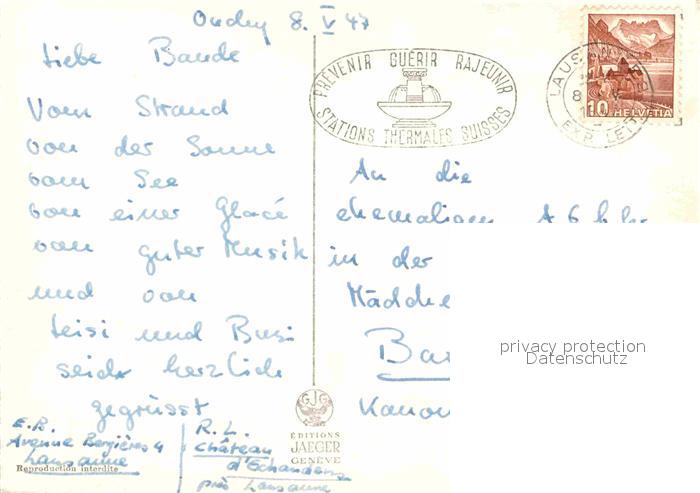 Ouchy 8. V 47
Liebe Bande
Vom Strand
von der Sonne
vom See
von einer Glacé
von guter Musik
und von
Leisi und Busi
seid herzlich
gegrüsst
E.R.
Avenue Bergières 4
Lausanne
R. L.
Château
d'Echandens
près Lausanne
Reproduction interdite
ÉDITIONS
JAEGER
GENÈVE
GJG
PRÉVENIR GUÉRIR RAJEUNIR
STATIONS THERMALES SUISSES
LAUSANNE
EXP. LETT
10 HELVETIA
An die
ehemaligen
in der
Mädche
Ba
Kanon
privacy protection
Datenschutz